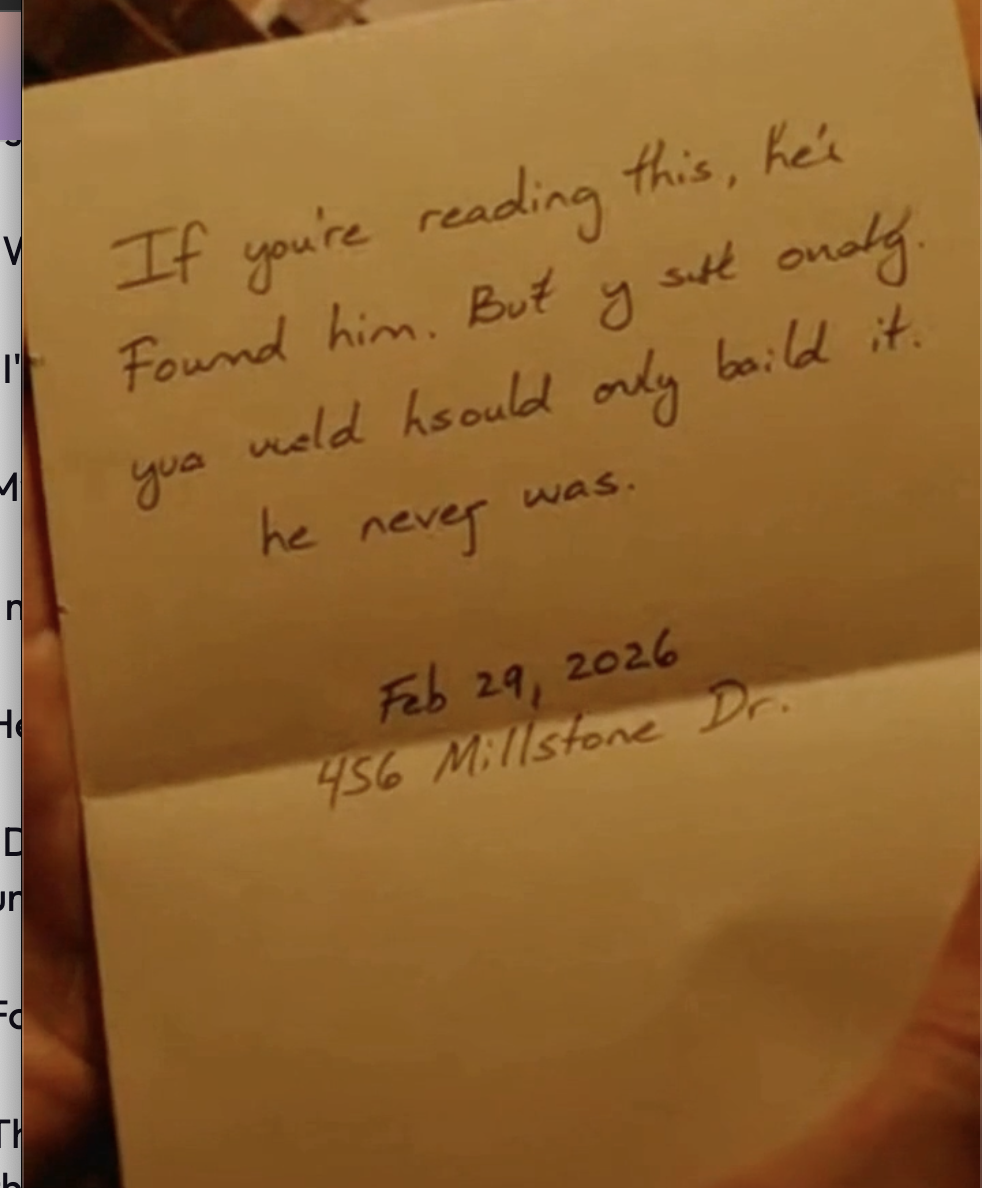 If you're reading this, he's
Found him. But y sitt onatg.
yua weld hsould only baild it.
he never was.
Feb 29, 2026
456 Millstone Dr.